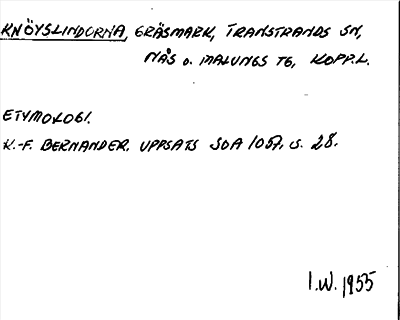 KNÖYSLINDORNA, GRÄSMARK, TRANSTRANDS SN,
NÅS o. MALUNGS TG, KOPP.L.
ETYMOLOGI.
K.-F. BERNANDER, UPPSATS SOA 1057, s. 28.
I.W. 1955